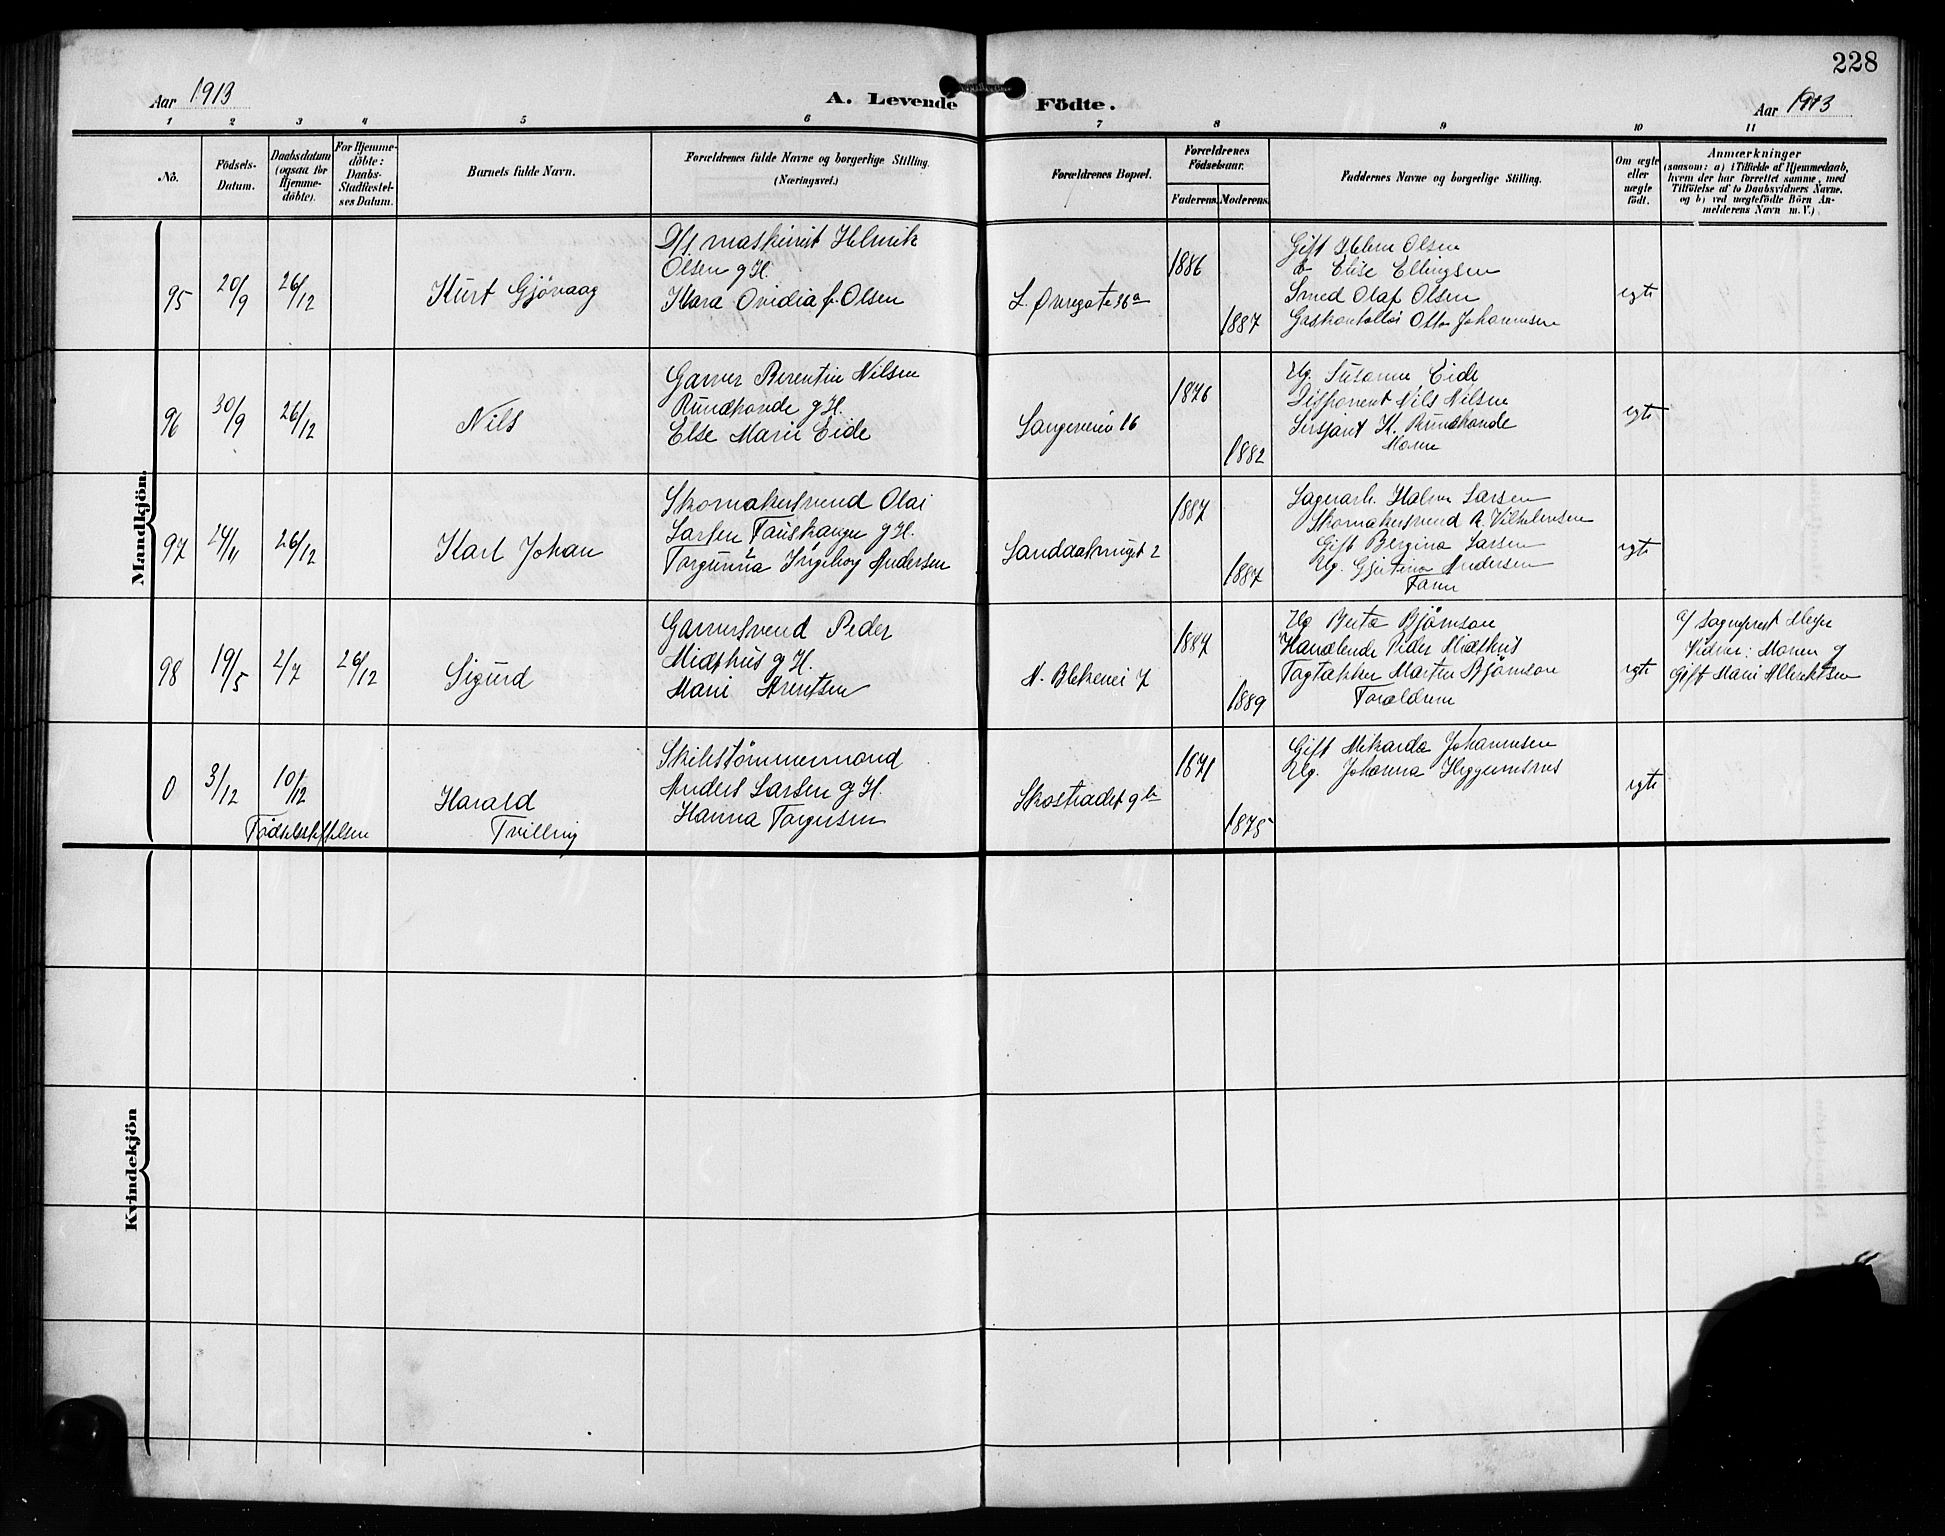 228
Aar 1913
A. Levende Födte.
Aar 1913
1 2 3 4 5 6 7 8 9 10 11
No.
Födsels-
Datum.
Daabsdatum
(ogsaa for
Hjemme-
döbte).
For Hjemme-
döbte:
Daabs-
Stadfæstel-
ses Datum.
Barnets fulde Navn.
Forældrenes fulde Navne og borgerlige Stilling.
(Næringsvei.)
Forældrenes Bopæl.
Forældrenes
Födselsaar.
Faderens. Moderens.
Faddernes Navne og borgerlige Stilling.
Om ægte
eller
uægte
födt.
Anmærkninger
(saasom: a) i Tilfælde af Hjemmedaab,
hvem der har forrettet samme, med
Tilföielse af to Daabsvidners Navne,
og b) ved uægtefödte Börn An-
melderens Navn m. V.).
Mandkjön.
95
20/9
26/12
Kurt Gjövaag
D/s maskinist Helmik
Olsen g H.
Kara Ovidia f. Olsen
L. Øvregate 36a
1886
1887
Gift Helene Olsen
Elise Ellingsen
Smed Olaf Olsen
Otto Johannesen
egte
96
30/9
26/12
Nils
Garver Berentin Nilsen
Rundhovde g H.
Else Marie Eide
16
1876
1882
Ug. Susanne Eide
Disponent Nils Nilsen
Sersjant K. Rundhovde
Moren
egte
97
24/11
26/12
Karl Johan
Skomakersvend Olai
Larsen Fauskanger g H.
Torgunna Ingeborg Andersen
2
1887
1887
Lagerarb. Halvor Larsen
Skomakersvend R. Vilhelmsen
Gift Bergina Larsen
Ug. Gjertine Andersen
Faren
egte
98
19/5
2/7
26/12
Sigurd
Garversvend Peder
Midthus g H.
Marie Arentsen
N. Blekevei 7
1887
1889
Ug Berta Bjørnson
Handlende Peder Midthus
Tagtækker Martin Bjørnson
Forældrene
egte
af Sogneprest Meyer
Vidner: Moren g
Gift Marie Albrektsen
0
3/12
10/12
Fødselsstiftelsen
Harald
Tvilling
Skibstømmermand
Anders Larsen g H.
Hanna Torgersen
Skostrædet 9b
1871
1875
Gift Mikarda Johannesen
Ug. Johanna Heggernesnes
egte
Kvindekjön